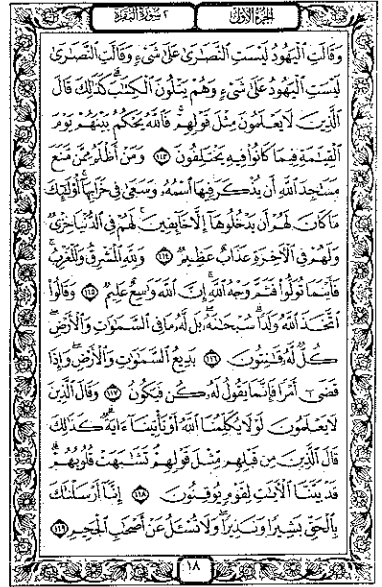 الجزء الأول
٢ سورة البقرة
وَقَالَتِ الْيَهُودُ لَيْسَتِ النَّصَارَىٰ عَلَىٰ شَىْءٍ وَقَالَتِ النَّصَارَىٰ
لَيْسَتِ الْيَهُودُ عَلَىٰ شَىْءٍ وَهُمْ يَتْلُونَ الْكِتَابَ كَذَٰلِكَ قَالَ
الَّذِينَ لَا يَعْلَمُونَ مِثْلَ قَوْلِهِمْ فَاللَّهُ يَحْكُمُ بَيْنَهُمْ يَوْمَ
الْقِيَامَةِ فِيمَا كَانُوا فِيهِ يَخْتَلِفُونَ ١١٣ وَمَنْ أَظْلَمُ مِمَّن مَّنَعَ
مَسَاجِدَ اللَّهِ أَن يُذْكَرَ فِيهَا اسْمُهُ وَسَعَىٰ فِي خَرَابِهَا أُولَٰئِكَ
مَا كَانَ لَهُمْ أَن يَدْخُلُوهَا إِلَّا خَائِفِينَ لَهُمْ فِي الدُّنْيَا خِزْىٌ
وَلَهُمْ فِي الْآخِرَةِ عَذَابٌ عَظِيمٌ ١١٤ وَلِلَّهِ الْمَشْرِقُ وَالْمَغْرِبُ
فَأَيْنَمَا تُوَلُّوا فَثَمَّ وَجْهُ اللَّهِ إِنَّ اللَّهَ وَاسِعٌ عَلِيمٌ ١١٥ وَقَالُوا
اتَّخَذَ اللَّهُ وَلَدًا سُبْحَانَهُ بَل لَّهُ مَا فِي السَّمَاوَاتِ وَالْأَرْضِ
كُلٌّ لَّهُ قَانِتُونَ ١١٦ بَدِيعُ السَّمَاوَاتِ وَالْأَرْضِ وَإِذَا
قَضَىٰ أَمْرًا فَإِنَّمَا يَقُولُ لَهُ كُن فَيَكُونُ ١١٧ وَقَالَ الَّذِينَ
لَا يَعْلَمُونَ لَوْلَا يُكَلِّمُنَا اللَّهُ أَوْ تَأْتِينَا آيَةٌ كَذَٰلِكَ
قَالَ الَّذِينَ مِن قَبْلِهِم مِّثْلَ قَوْلِهِمْ تَشَابَهَتْ قُلُوبُهُمْ
قَدْ بَيَّنَّا الْآيَاتِ لِقَوْمٍ يُوقِنُونَ ١١٨ إِنَّا أَرْسَلْنَاكَ
بِالْحَقِّ بَشِيرًا وَنَذِيرًا وَلَا تُسْأَلُ عَنْ أَصْحَابِ الْجَحِيمِ ١١٩
١٨